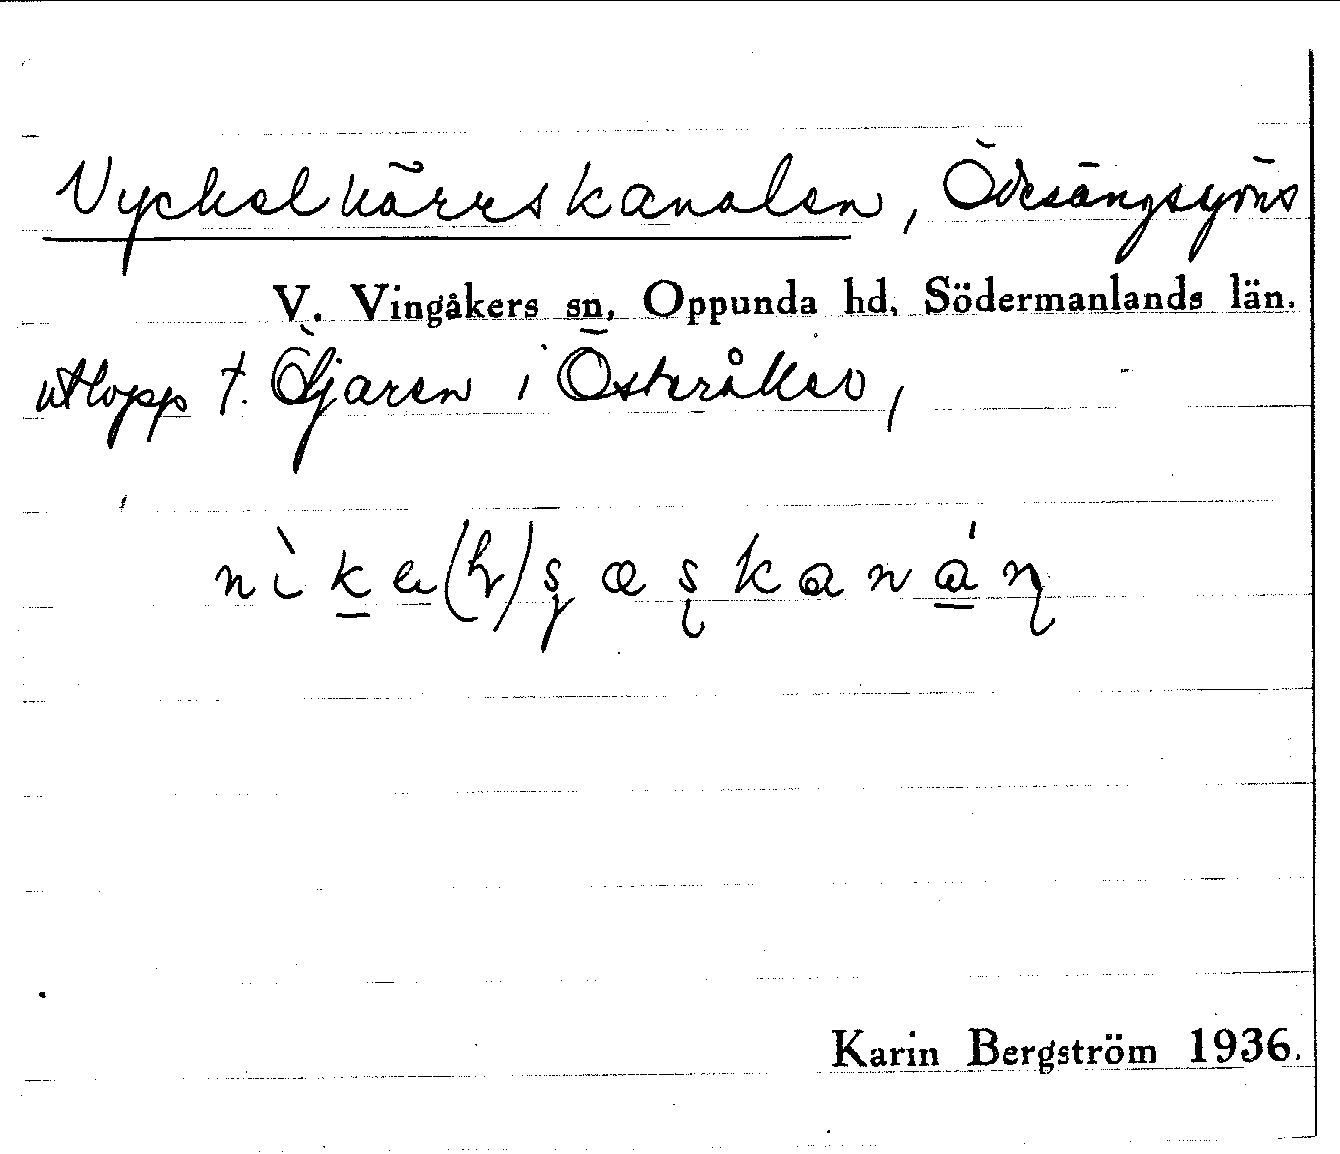 Nyckelkärrskanalen, Ödesängsjöns
V. Vingåkers sn, Oppunda hd, Södermanlands län.
utlopp t. Öljaren i Österåker,
Karin Bergström 1936.